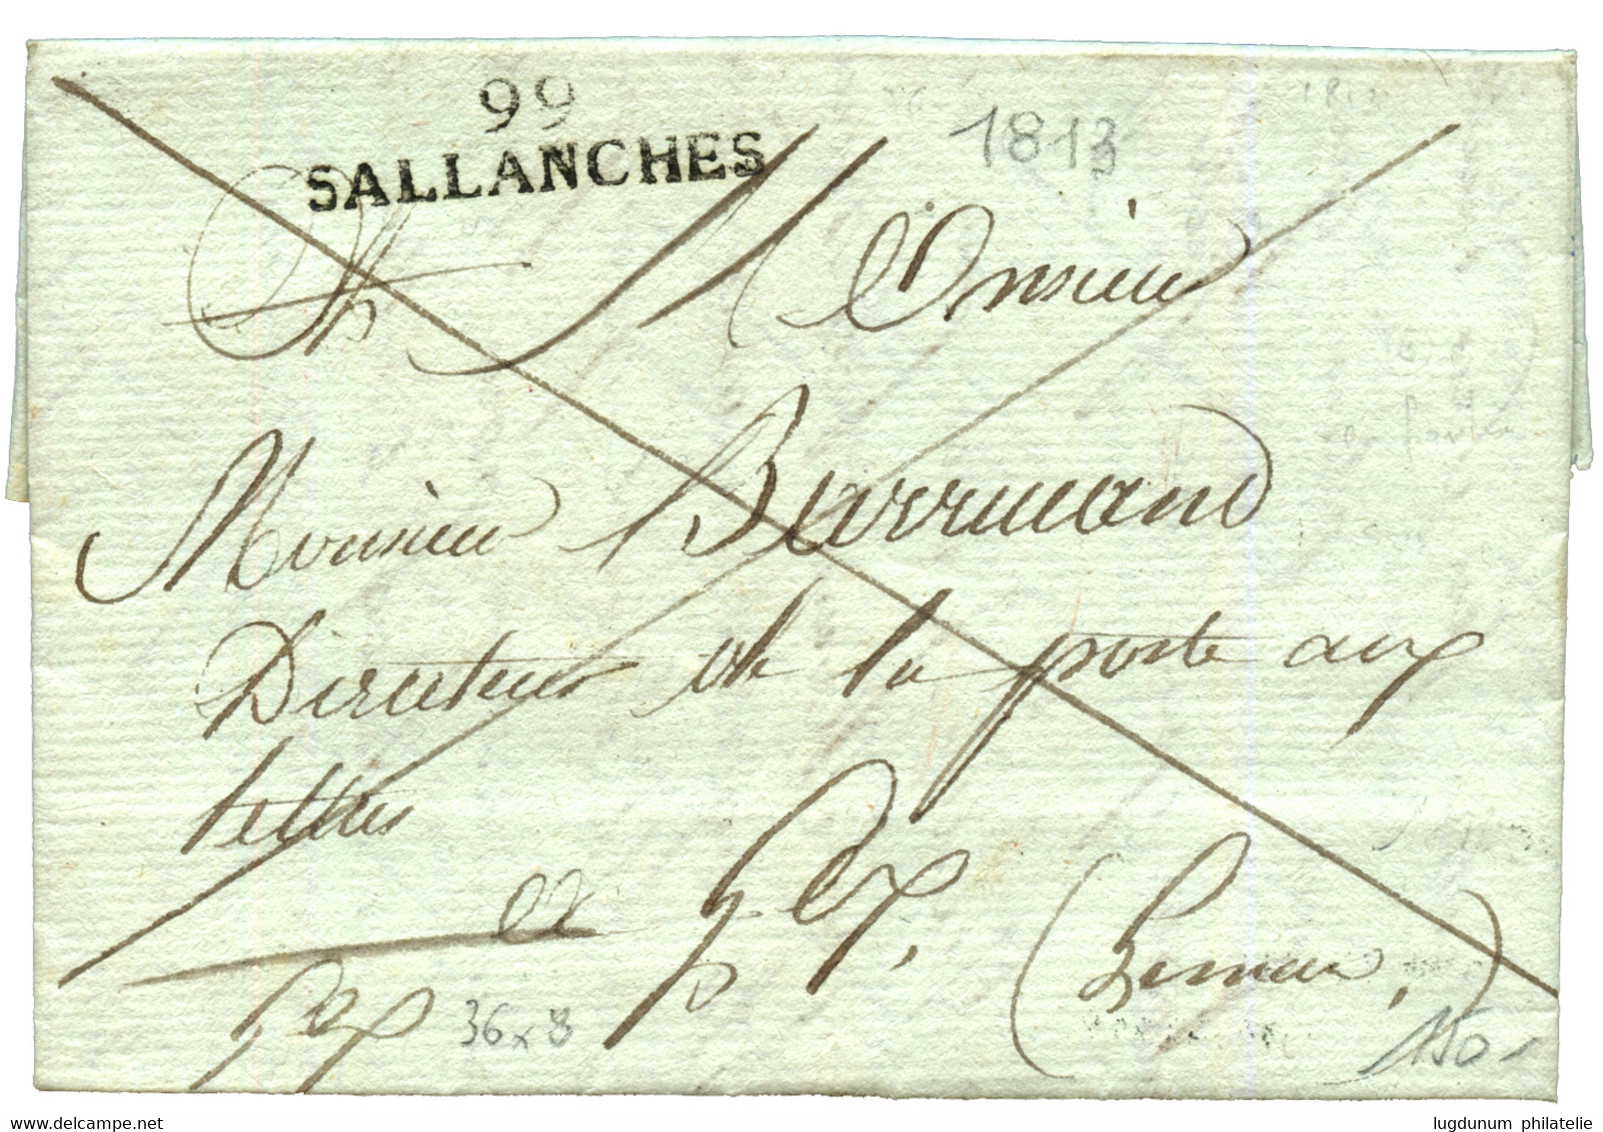 99
SALLANCHES
1813
Monsieur
Monsieur Burrmand
Directeur de la poste aux
lettres
Gex. (Leman)
Gex
36 x 8
150-
lugdunum philatelie